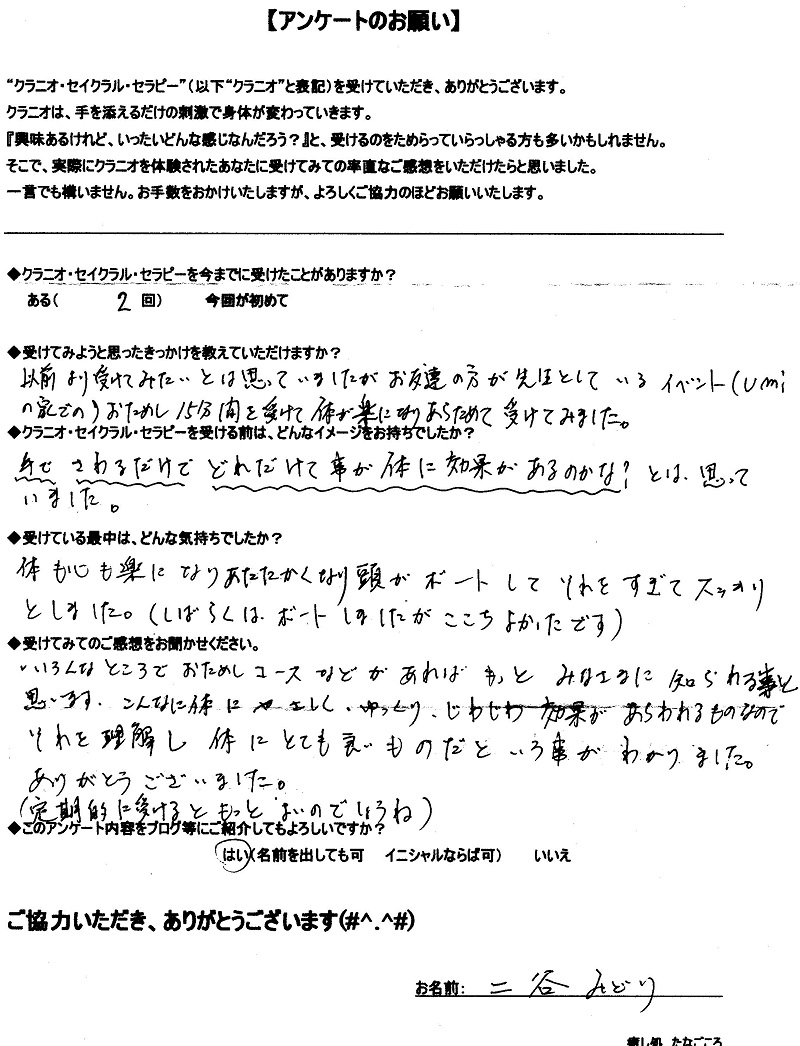 【アンケートのお願い】
“クラニオ・セイクラル・セラピー”（以下“クラニオ”と表記）を受けていただき、ありがとうございます。
クラニオは、手を添えるだけの刺激で身体が変わっていきます。
『興味あるけれど、いったいどんな感じなんだろう？』と、受けるのをためらっていらっしゃる方も多いかもしれません。
そこで、実際にクラニオを体験されたあなたに受けてみての率直なご感想をいただけたらと思いました。
一言でも構いません。お手数をおかけいたしますが、よろしくご協力のほどお願いいたします。
◆クラニオ・セイクラル・セラピーを今までに受けたことがありますか？
ある（ 2 回） 今回が初めて
◆受けてみようと思ったきっかけを教えていただけますか？
以前より受けてみたいとは思っていましたがお友達の方が先生としているイベント（umi
の家での）おためし15分間を受けて体が楽になりあらためて受けてみました。
◆クラニオ・セイクラル・セラピーを受ける前は、どんなイメージをお持ちでしたか？
さわるだけでどれだけて事が体に効果があるのかな？とは、思って
いました。
◆受けている最中は、どんな気持ちでしたか？
体も心も楽になりあたたかくなり頭がボートしてそれをすぎてスッキリ
としました。（しばらくは、ボートしましたがここちよかったです）
◆受けてみてのご感想をお聞かせください。
いろんなところでおためしコースなどがあればもっとみなさまに知られる事と
思います。こんなに体にやさしく、ゆっくり、じわじわ効果があらわれるものなので
それを理解し体にとても良いものだという事がわかりました。
ありがとうございました。
（定期的に受けるともっと良いのでしょうね）
◆このアンケート内容をブログ等にご紹介してもよろしいですか？
はい（名前を出しても可 イニシャルならば可） いいえ
ご協力いただき、ありがとうございます(#^.^#)
お名前： 二谷 みどり
癒し処 たなごころ